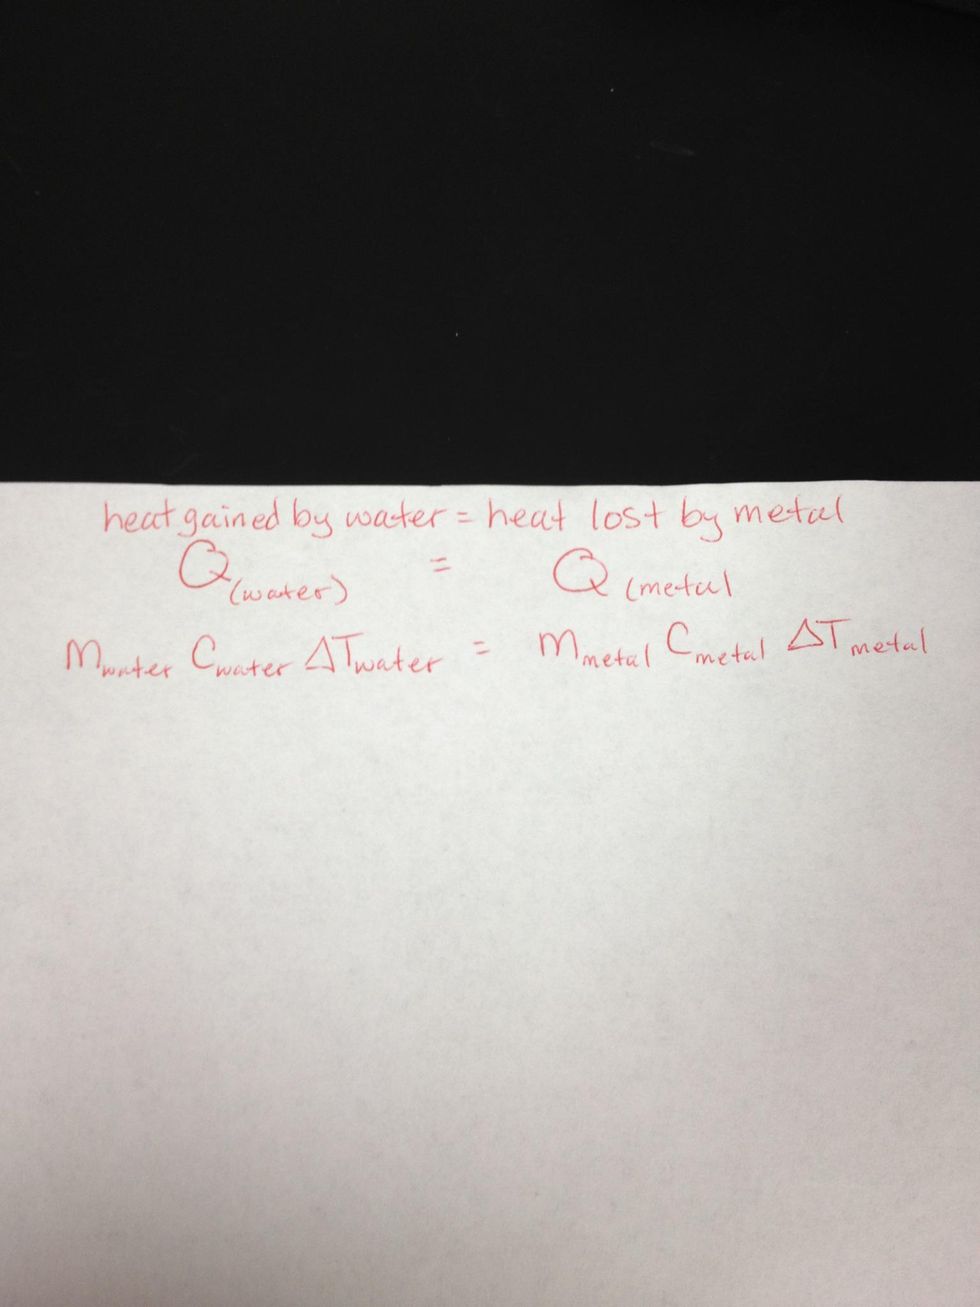 heat gained by water = heat lost by metal
Q(water) = Q(metal
mwater Cwater ΔTwater = mmetal Cmetal ΔTmetal